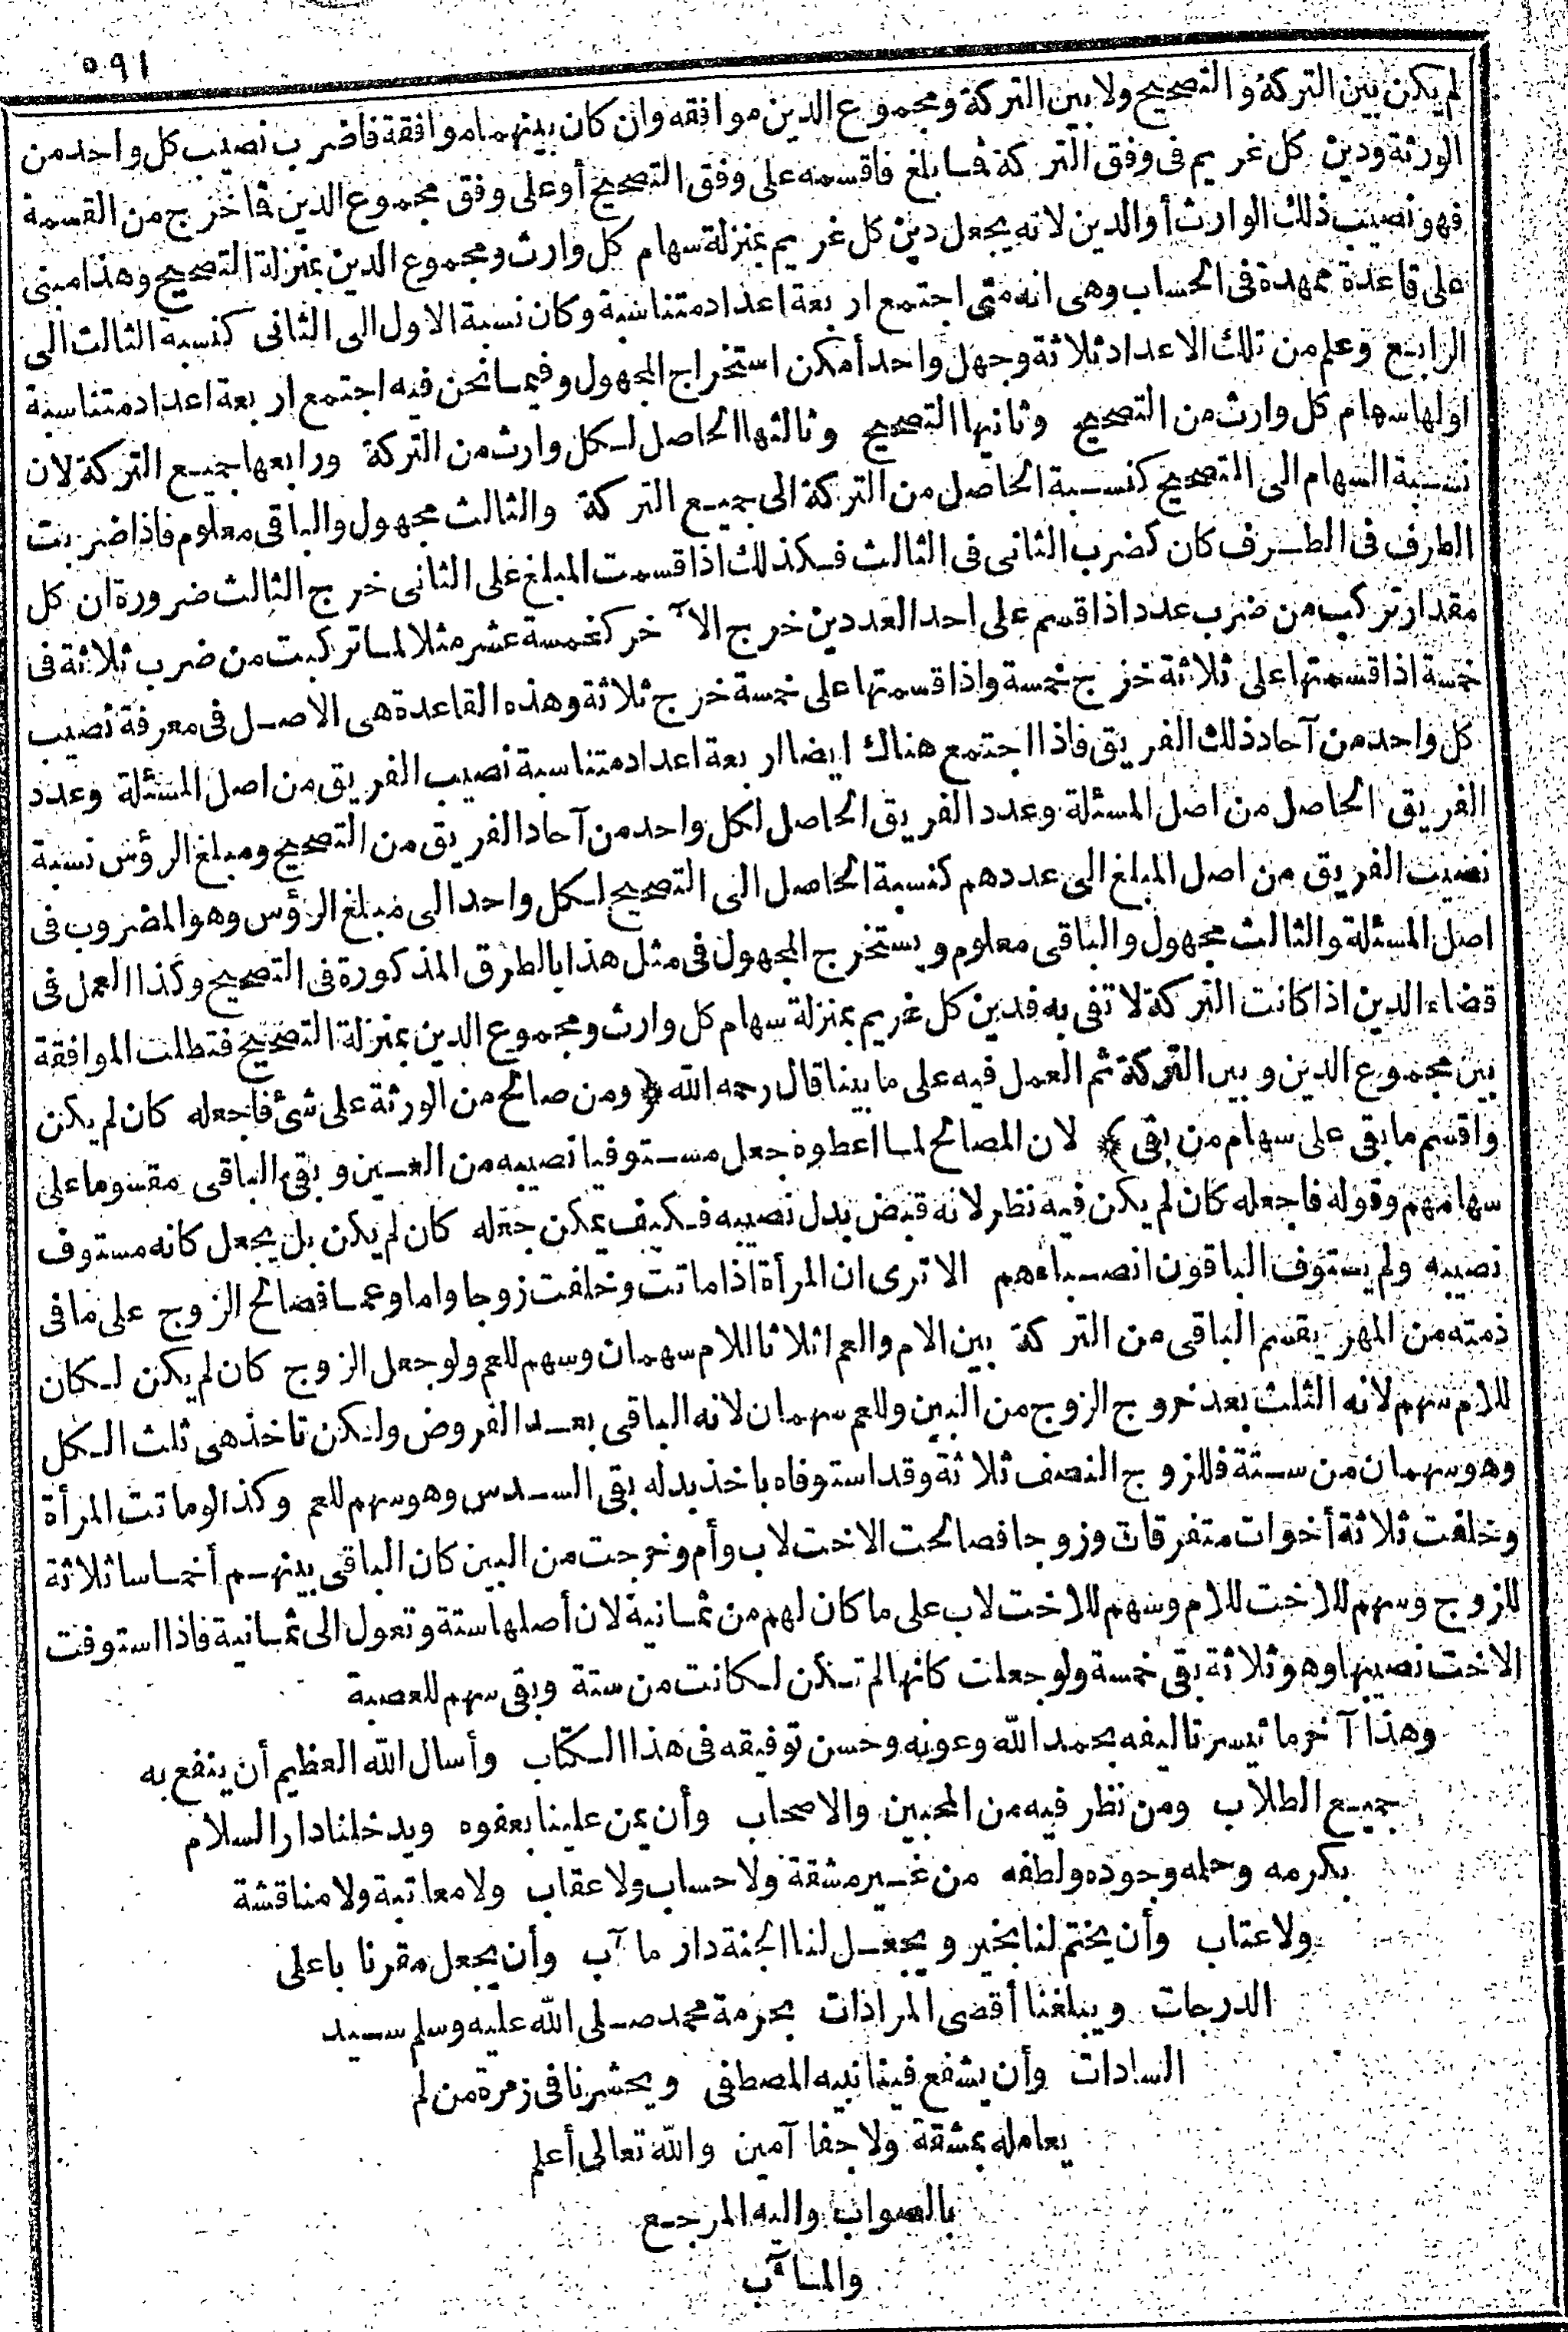 ٥٩١
لم يكن بين التركة والتصحيح ولا بين التركة ومجموع الدين موافقه وان كان بينهما موافقة فاضرب نصيب كل واحد من
الورثة ودين كل غريم فى وفق التركة فما بلغ فاقسمه على وفق التصحيح أو على وفق مجموع الدين فما خرج من القسمة
فهو نصيب ذلك الوارث أو الدين لانه يجعل دين كل غريم بمنزلة سهام كل وارث ومجموع الدين بمنزلة التصحيح وهذا مبنى
على قاعدة ممهدة فى الحساب وهى انه متى اجتمع اربعة اعداد متناسبة وكان نسبة الاول الى الثانى كنسبة الثالث الى
الرابع وعلم من تلك الاعداد ثلاثة وجهل واحد أمكن استخراج المجهول وفيما نحن فيه اجتمع اربعة اعداد متناسبة
اولها سهام كل وارث من التصحيح وثانيها التصحيح وثالثها الحاصل لكل وارث من التركة ورابعها جميع التركة لان
نسبة السهام الى التصحيح كنسبة الحاصل من التركة الى جميع التركة والثالث مجهول والباقى معلوم فاذا ضربت
الطرف فى الطرف كان كضرب الثانى فى الثالث فكذلك اذا قسمت المبلغ على الثانى خرج الثالث ضرورة ان كل
مقدار تركب من ضرب عدد اذا قسم على احد العددين خرج الآخر كخمسة عشر مثلا لما تركبت من ضرب ثلاثة فى
خمسة اذا قسمتها على ثلاثة خرج خمسة واذا قسمتها على خمسة خرج ثلاثة وهذه القاعدة هى الاصل فى معرفة نصيب
كل واحد من آحاد ذلك الفريق فاذا اجتمع هناك ايضا اربعة اعداد متناسبة نصيب الفريق من اصل المسئلة وعدد
الفريق الحاصل من اصل المسئلة وعدد الفريق الحاصل لكل واحد من آحاد الفريق من التصحيح ومبلغ الرؤس نسبة
نصيب الفريق من اصل المبلغ الى عددهم كنسبة الحاصل الى التصحيح لكل واحد الى مبلغ الرؤس وهو المضروب فى
اصل المسئلة والثالث مجهول والباقى معلوم ويستخرج المجهول فى مثل هذا بالطرق المذكورة فى التصحيح وكذا العمل فى
قضاء الدين اذا كانت التركة لا تفى به فدين كل غريم بمنزلة سهام كل وارث ومجموع الدين بمنزلة التصحيح فتطلب الموافقة
بين مجموع الدين وبين التركة ثم العمل فيه على ما بينا قال رحمه الله ﴿ ومن صالح من الورثة على شئ فاجعله كان لم يكن
واقسم ما بقى على سهام من بقى ﴾ لان المصالح لما اعطوه جعل مستوفيا نصيبه من العين وبقى الباقى مقسوما على
سهامهم وقوله فاجعله كان لم يكن فيه نظر لانه قبض بدل نصيبه فكيف يمكن جعله كان لم يكن بل يجعل كانه مستوف
نصيبه ولم يستوف الباقون انصباءهم الا ترى ان المرأة اذا ماتت وخلفت زوجا واما وعما فصالح الزوج على ما فى
ذمته من المهر يقسم الباقى من التركة بين الام والعم اثلاثا للام سهمان وسهم للعم ولو جعل الزوج كان لم يكن لكان
للام سهم لانه الثلث بعد خروج الزوج من البين وللعم سهمان لانه الباقى بعد الفروض ولكن تاخذهى ثلث الكل
وهو سهمان من ستة فللزوج النصف ثلاثة وقد استوفاه باخذ بدله بقى السدس وهو سهم للعم وكذا لو ماتت المرأة
وخلفت ثلاثة أخوات متفرقات وزوجا فصالحت الاخت لاب وأم وخرجت من البين كان الباقى بينهم أخماسا ثلاثة
للزوج وسهم للاخت للام وسهم للاخت لاب على ما كان لهم من ثمانية لان أصلها ستة وتعول الى ثمانية فاذا استوفت
الاخت نصيبها وهو ثلاثة بقى خمسة ولو جعلت كانها لم تكن لكانت من ستة وبقى سهم للعصبة
وهذا آخر ما تيسر تاليفه بحمد الله وعونه وحسن توفيقه فى هذا الكتاب وأسال الله العظيم أن ينفع به
جميع الطلاب ومن نظر فيه من المحبين والاصحاب وأن يمن علينا بعفوه ويدخلنا دار السلام
بكرمه وحلمه وجوده ولطفه من غير مشقة ولا حساب ولا عقاب ولا معاتبة ولا مناقشة
ولا عتاب وأن يختم لنا بخير ويجعل لنا الجنة دار مآب وأن يجعل مقرنا باعلى
الدرجات ويبلغنا أقضى المرادات بحرمة محمد صلى الله عليه وسلم سيد
السادات وأن يشفع فينا نبيه المصطفى ويحشرنا فى زمرة من لم
يعامله بمشقة ولا جفا آمين والله تعالى أعلم
بالصواب واليه المرجع
والمآب